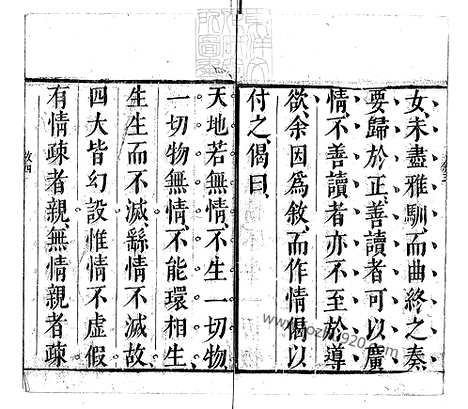 女未盡雅馴而曲終之奏
要歸於正善讀者可以廣
情不善讀者亦不至於導
欲余因為敘而作情偈以
付之偈曰
天地若無情不生一切物
一切物無情不能環相生
生生而不滅繇情不滅故
四大皆幻設惟情不虛假
有情疎者親無情親者疎
敘四